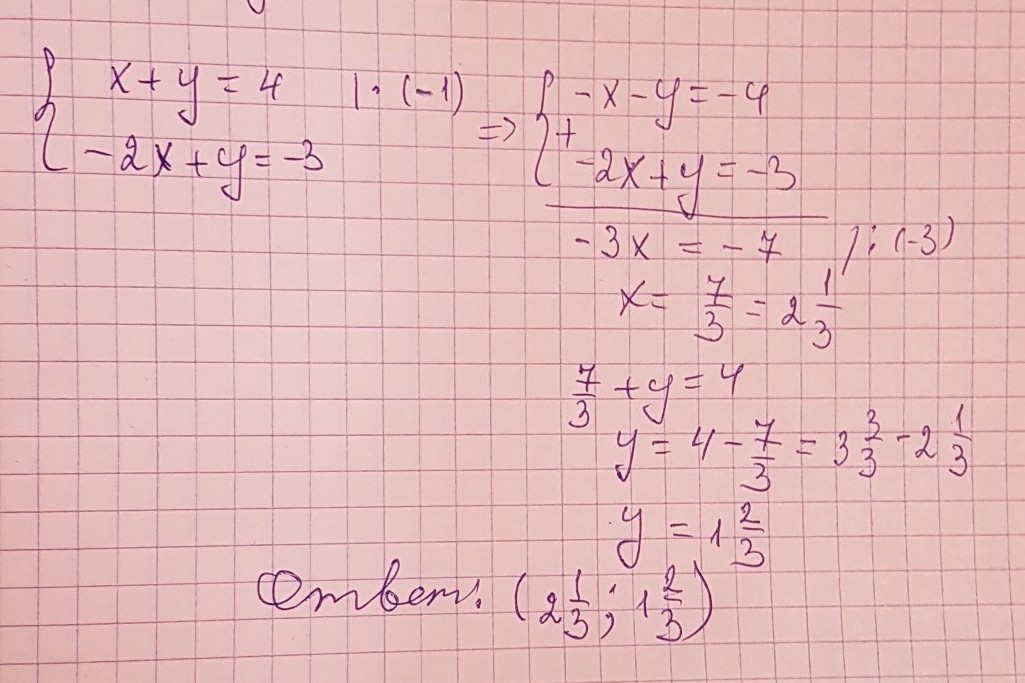 x + y = 4 |· (-1)
-2x + y = -3
=> 
-x - y = -4
+
-2x + y = -3
-3x = -7 /: (-3)
x = 7/3 = 2 1/3
7/3 + y = 4
y = 4 - 7/3 = 3 3/3 - 2 1/3
y = 1 2/3
Ответ: (2 1/3; 1 2/3)